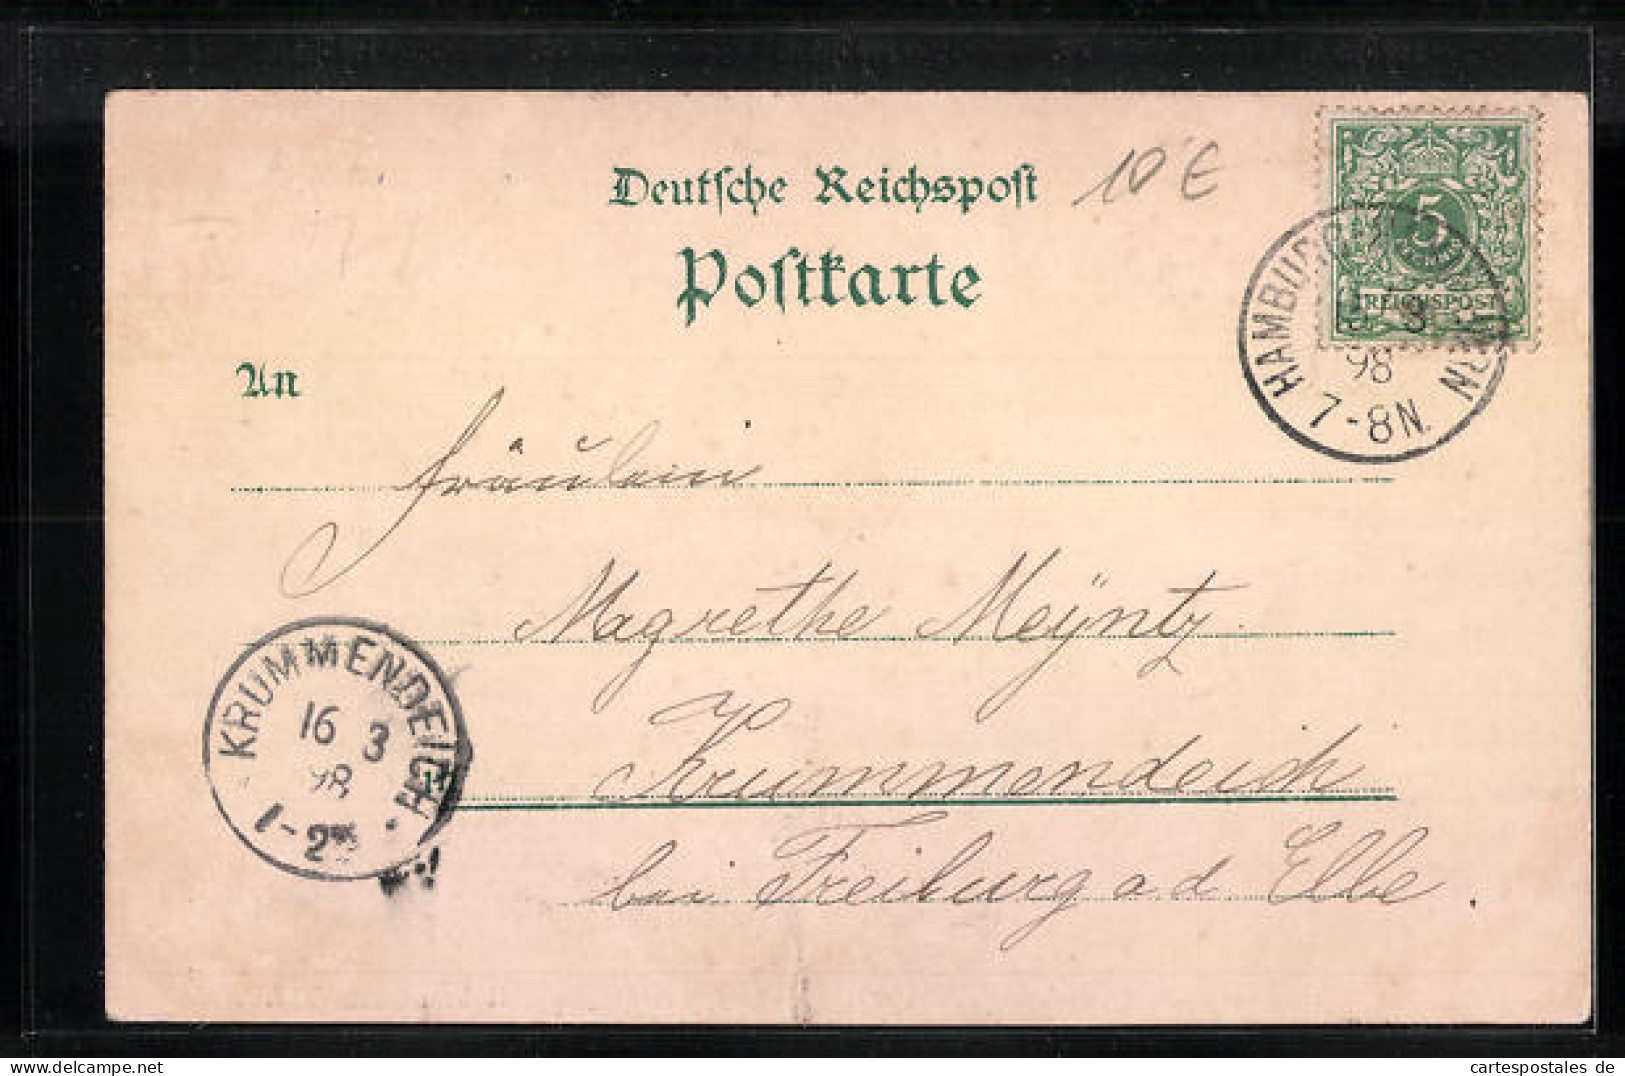 Deutsche Reichspost
10 €
Postkarte
5
REICHSPOST
HAMBURG
98
7-8N.
An
Fräulein
Magrethe Meÿntz
Krummendeich
bei Freiburg a. d. Elbe.
KRUMMENDEICH
16 3
98
1-2N
cartespostales de